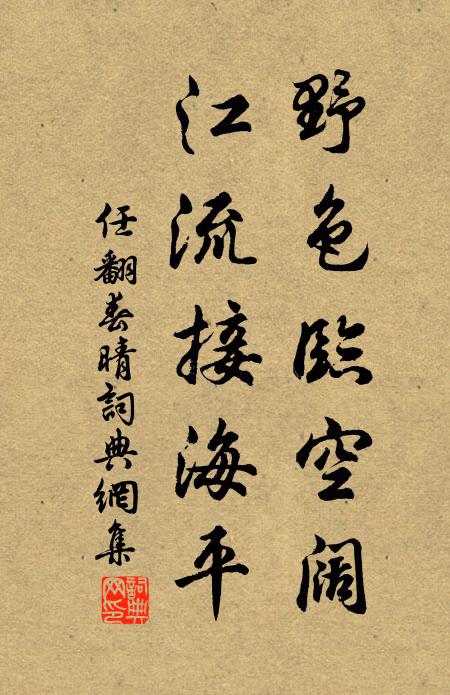 野色臨空阔
江流接海平
任翻春晴詞典網集
詞典网印